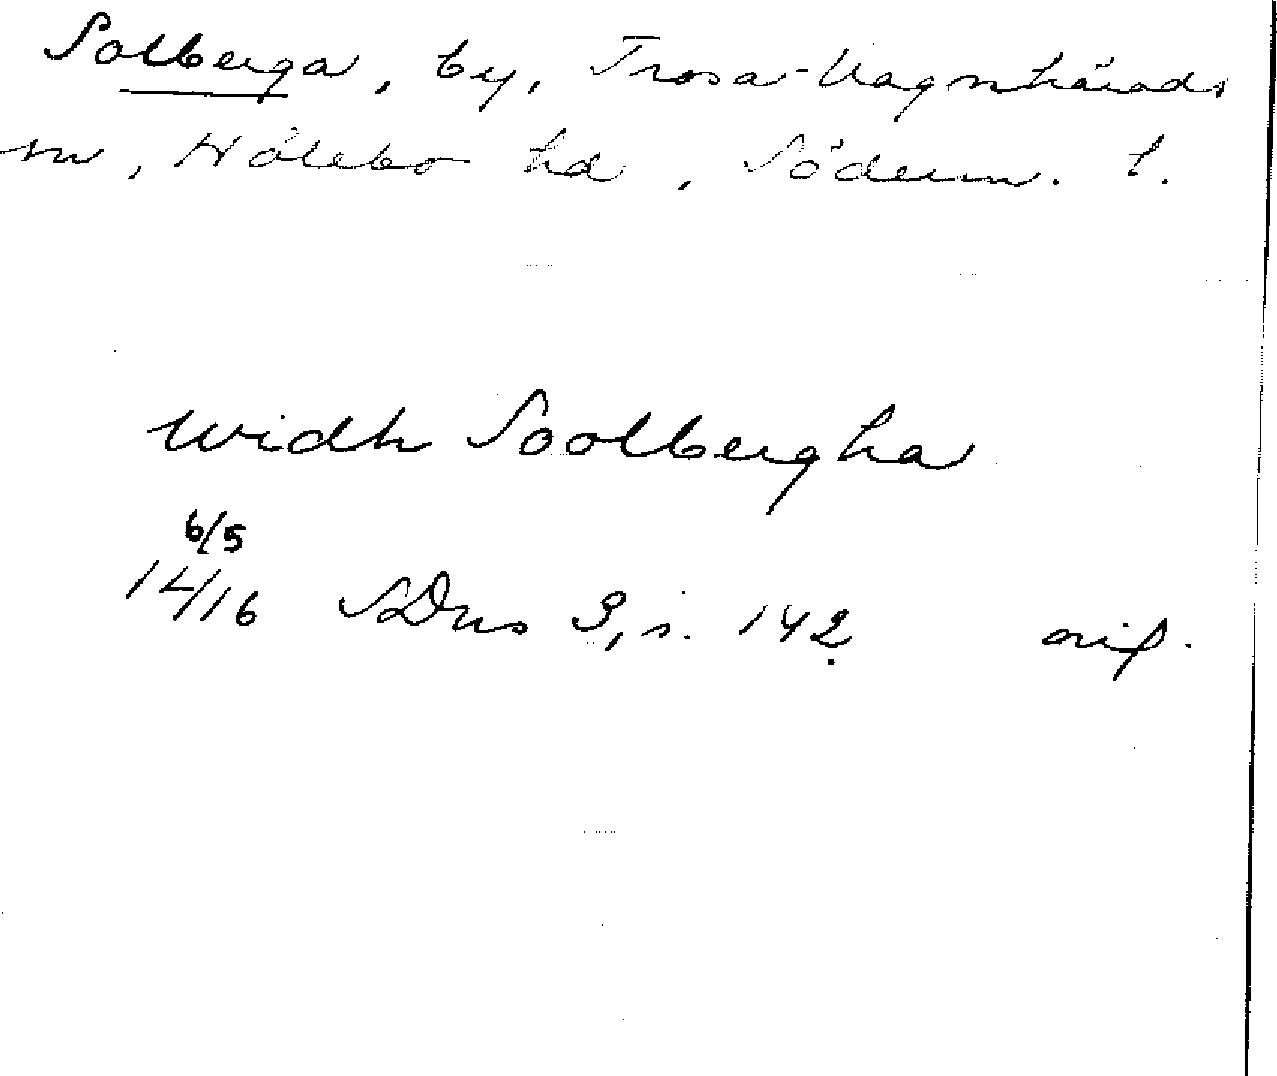 Solberga, by, Trosa-Vagnhärads
sn, Hölebo hd, Söderm. l.
widh Soolbergha
6/5
1416 SDns 3, s. 142 orig.